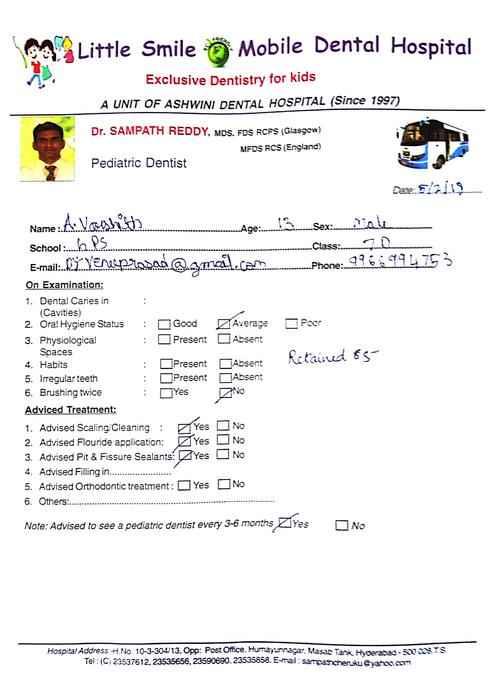 Little Smile Mobile Dental Hospital
Exclusive Dentistry for kids
A UNIT OF ASHWINI DENTAL HOSPITAL (Since 1997)
Dr. SAMPATH REDDY, MDS. FDS RCPS (Glasgow)
MFDS RCS (England)
Pediatric Dentist
Date: 5/2/19
Name: A. Varshith Age: 13 Sex: Male
School: HPS Class: 7 D
E-mail: @gmail.com Phone: 9966994753
On Examination:
1. Dental Caries in :
(Cavities)
2. Oral Hygiene Status : Good Average Poor
3. Physiological : Present Absent
Spaces
Retained 85
4. Habits : Present Absent
5. Irregular teeth : Present Absent
6. Brushing twice : Yes No
Adviced Treatment:
1. Advised Scaling/Cleaning : Yes No
2. Advised Flouride application: Yes No
3. Advised Pit & Fissure Sealants: Yes No
4. Advised Filling in......................
5. Advised Orthodontic treatment : Yes No
6. Others:......................................................................
Note: Advised to see a pediatric dentist every 3-6 months Yes No
Hospital Address :-H.No. 10-3-304/13, Opp: Post Office, Humayunnagar, Masab Tank, Hyderabad - 500 028.T.S.
Tel : (C) 23537612, 23535656, 23590690. 23535858. E-mail : sampathcheruku@yahoo.com